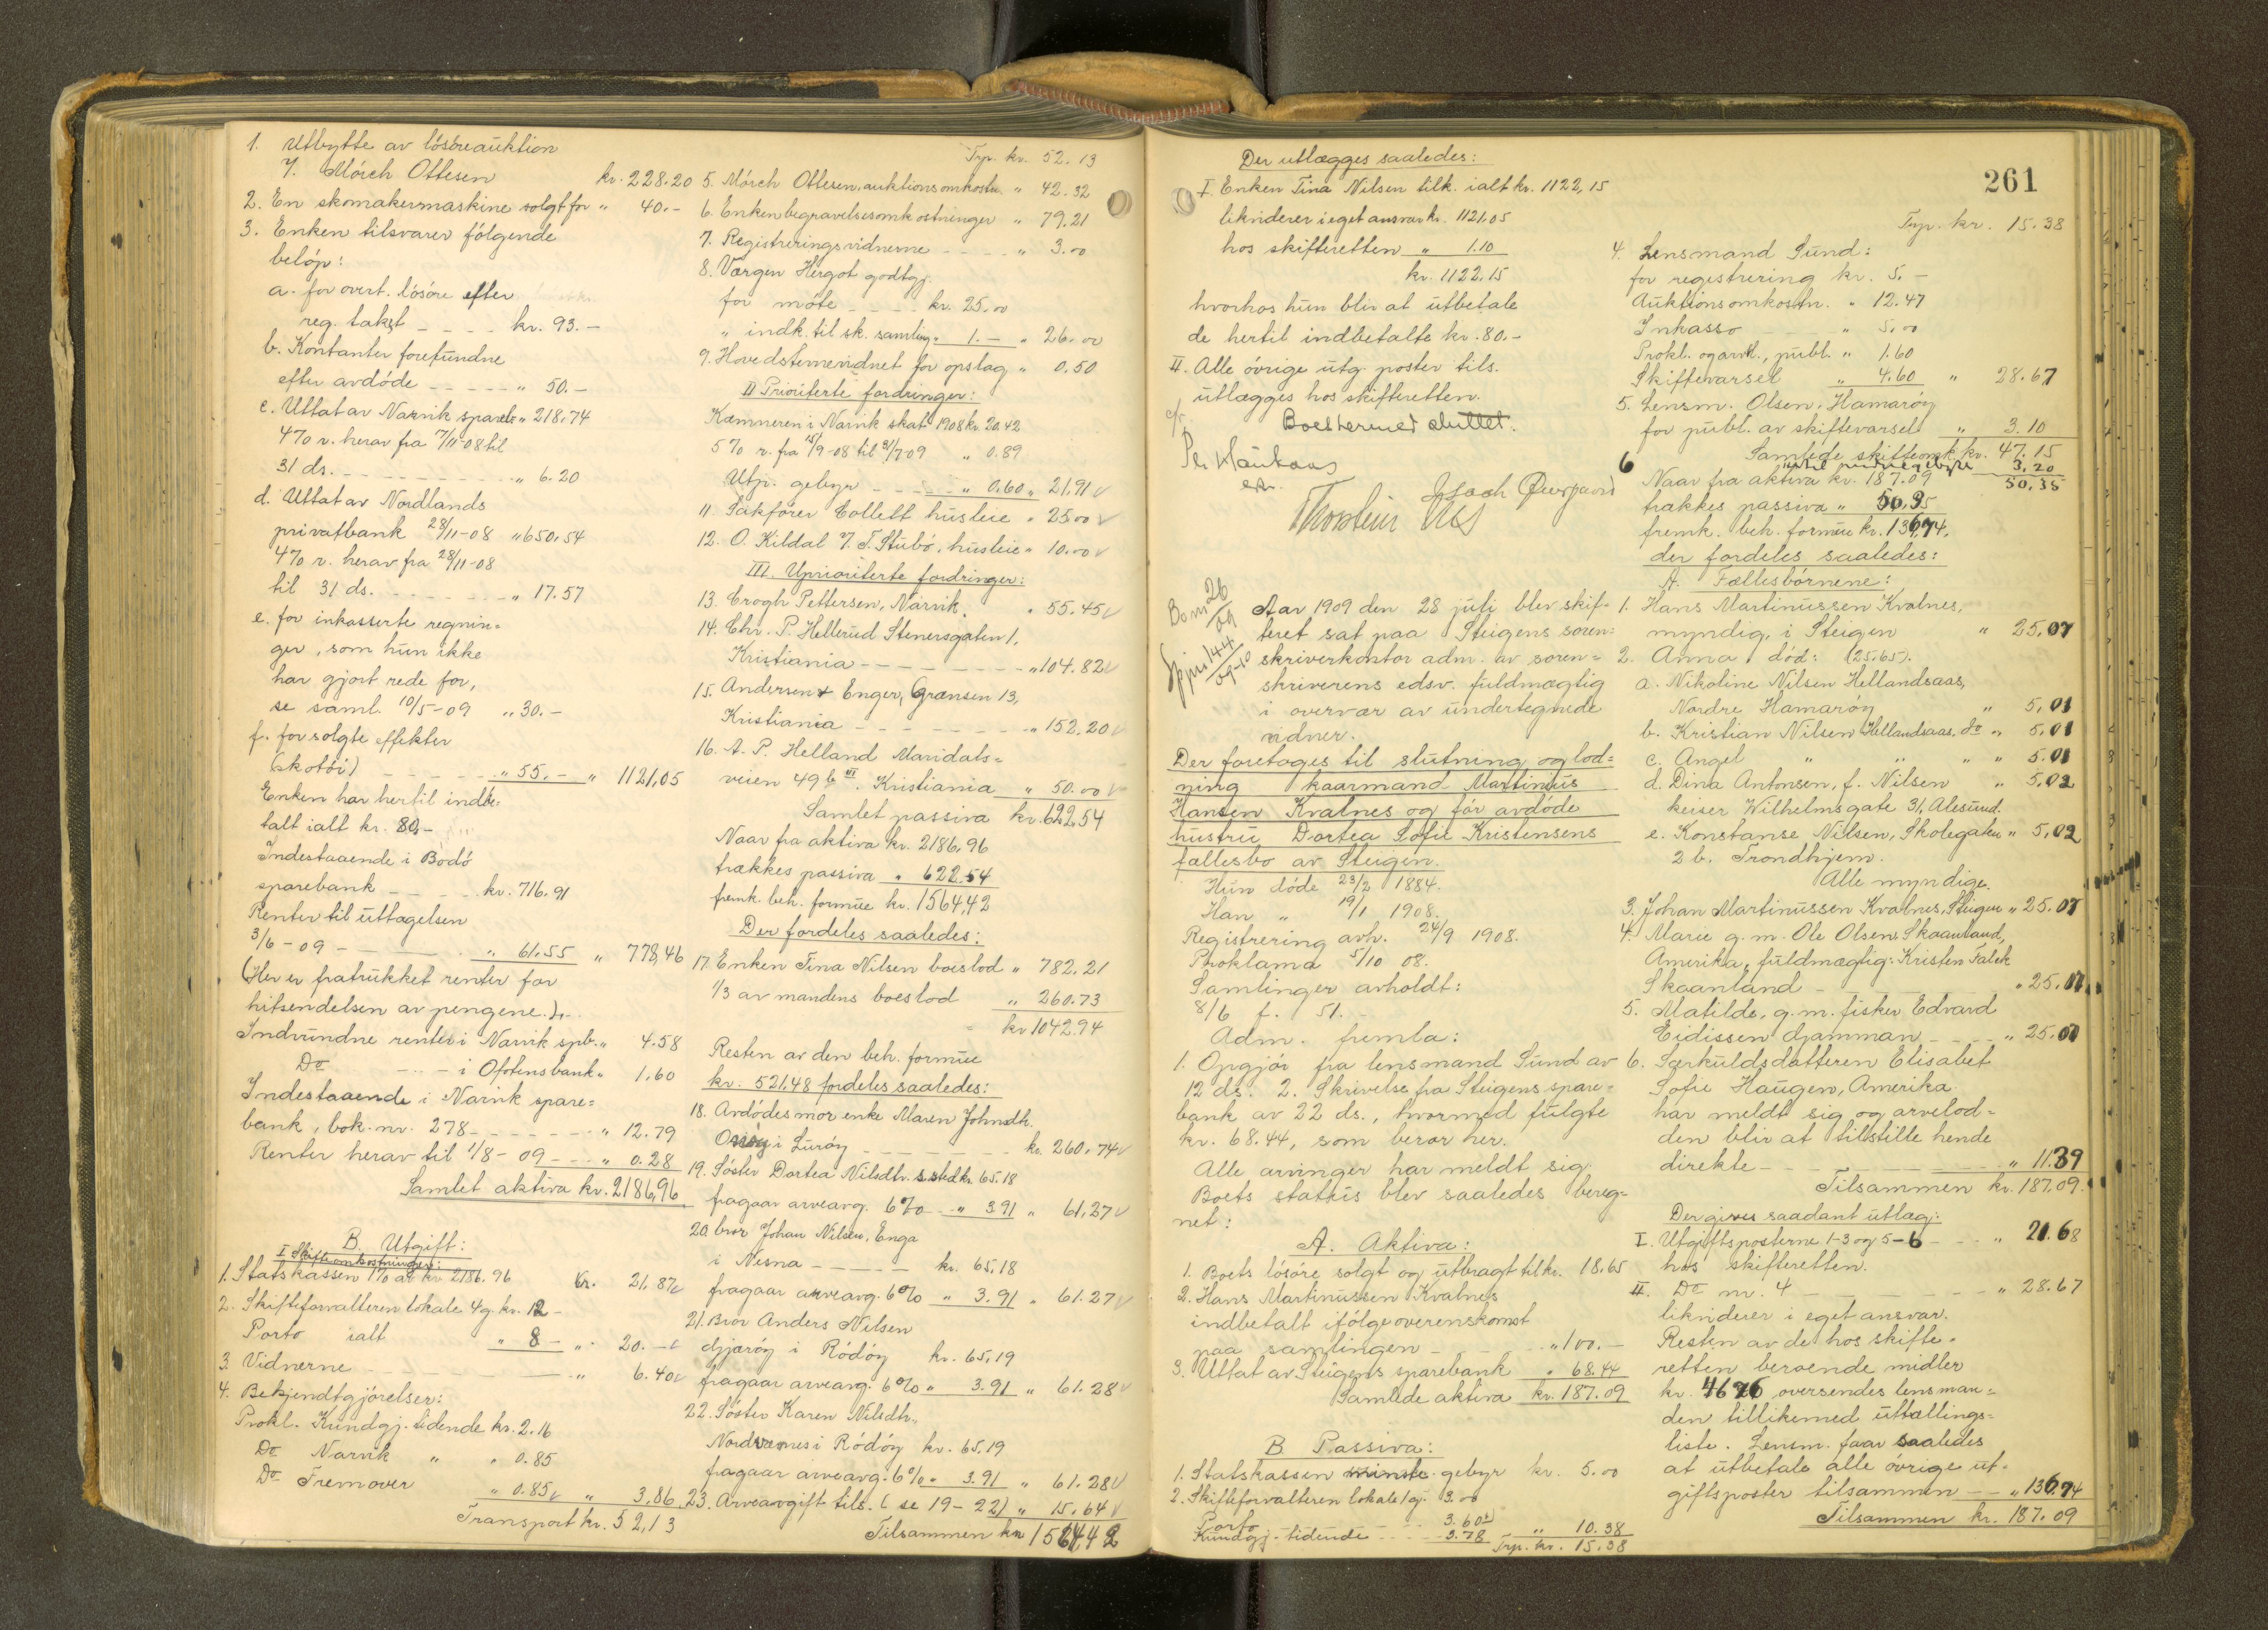 1. Utbytte av lösöreauktion
v. Mörch Ottesen kr. 228.20
2. En skomakermaskine solgt for " 40.-
3. Enken tilsvarer følgende
beløp:
a. for overt. lösöre efter
reg. takst - - - - kr. 93.-
b. Kontanter forefundne
efter avdöde - - - - - " 50.-
c. Uttat av Narvik spareb. " 218.74
4% r. herav fra 7/11-08 til
31 ds. - - - - - - - - " 6.20
d. Uttat av Nordlands
privatbank 28/11-08 " 650.54
4% r. herav fra 28/11-08
til 31 ds. - - - - - - - " 17.57
e. for inkasserte regnin=
ger, som hun ikke
har gjort rede for,
se saml. 10/5-09 " 30.-
f. for solgte effekter
(skotöi) - - - - - " 55.- " 1121,05
Enken har hertil indbe=
talt ialt kr. 80,-
Indestaaende i Bodö
sparebank - - - - kr. 716.91
Renter til uttagelsen
3/6-09 - - - " 61.55 " 778,46
(Her er fratrukket renter for
hitsendelsen av pengene.).
Indvundne renter i Narvik spb. " 4.58
Do - - - i Ofotens bank " 1.60
Indestaaende i Narvik spare=
bank, bok. nr. 278 - - - - - - " 12.79
Renter herav til 1/8-09 - - - " 0.28
Samlet aktiva kr. 2186,96
B. Utgift:
I Skifteomkostninger:
1. Statskassen 1% av kr 2186.96 kr. 21,87
2. Skifteforvalteren lokale 4 g. kr. 12 -
Porto ialt " 8 - " 20.-
3. Vidnerne - - - - " 6.40
4. Bekjendtgjörelser:
Prokl. Kundgj. tidende kr. 2.16
Do Narvik " " 0.85
Do Fremover " 0.85 " 3,86
Transport kr. 52,13
Trp. kr. 52.13
5. Mörch Ottesen, auktionsomkostn. " 42.32
6. Enken begravelsesomkostninger " 79.21
7. Registreringsvidnerne - - - - " 3.00
8. Værgen Hergot godtgj.
for möte - - - - kr. 25.00
" indk. til sk. samling " 1.- " 26.00
9. Hovedstevnevidnet for opslag " 0.50
II Prioriterte fordringer:
Kæmneren i Narvik skat 1908 kr. 20.42
5% r. fra 15/9-08 til 31/7-09 " 0.89
Utp. gebyr - - - - " 0.60 " 21.91
11. Sakförer Collett husleie " 25.00
12. O. Kildal v. T. Stubö, husleie " 10.00
III. Uprioriterte fordringer:
13. Crogh Pettersen, Narvik. " 55.45
14. Chr. P. Hellerud Stenersgaten 1,
Kristiania - - - - - - - - " 104.82
15. Andersen & Enger, Grænsen 13,
Kristiania - - - - - - - - " 152.20
16. A. P. Helland Maridals=
veien 49 b III. Kristiania " 50.00
Samlet passiva kr. 622,54
Naar fra aktiva kr. 2186,96
trækkes passiva " 622.54
fremk. beh. formue kr. 1564,42
Der fordeles saaledes:
17. Enken Tina Nilsen boeslod " 782.21
1/3 av mandens boeslod " 260.73
kr 1042.94
Resten av den beh. formue
kr. 521,48 fordeles saaledes:
18. Avdödes mor enke Maren Johnsdtr.
i Luröy - - - - - - - kr. 260.74
19. Söster Dortea Nilsdtr. s. sted kr. 65.18
fragaar arveavg. 6% - " 3.91 " 61,27
20. bror Johan Nilsen, Enga
i Nesna - - - - - kr. 65,18
fragaar arveavg. 6% " 3.91 " 61.27
21. Bror Anders Nilsen
Gjæröy i Rödöy kr. 65,19
fragaar arveavg. 6% " 3.91 " 61.28
22. Söster Karen Nilsdtr.,
Nordværnes i Rödöy kr. 65.19
fragaar arveavg. 6% " 3.91 " 61.28
23. Arveavgift tils. (se 19-22) " 15.64
Tilsammen kr 1564,42
Der utlægges saaledes:
I. Enken Tina Nilsen tilk. ialt kr. 1122,15
likviderer i eget ansvar kr. 1121.05
hos skifteretten " 1.10
kr. 1122.15
hvorhos hun blir at utbetale
de hertil indbetalte kr. 80.-
II. Alle övrige utg. poster tils.
utlægges hos skifteretten.
Boet dermed sluttet.
Bom 26/09
Sjpr. 144/09-10
Aar 1909 den 28 juli blev skif-
teret sat paa Steigens soren=
skriverkontor adm. av soren=
skriverens edsv. fuldmægtig
i overvær av undertegnede
vidner.
Der foretoges til slutning og lod=
ning kaarmand Martinius
Hansen Kvalnes og før avdöde
hustru Dortea Sofie Kristensens
fællesbo av Steigen.
Hun döde 23/2 1884.
Han " 19/1 1908.
Registrering avh. 24/9 1908.
Proklama 5/10 08.
Samlinger avholdt:
8/6 f. 51.
Adm. fremla:
1. Opgjör fra lensmand Sund av
12 ds. 2. Skrivelse fra Steigens spare=
bank av 22 ds., hvormed fulgte
kr. 68.44, som beror her.
Alle arvinger har meldt sig.
Boets status blev saaledes bereg=
net:
A. Aktiva:
1. Boets lösöre solgt og utbragt til kr. 18.65
2. Hans Martinussen Kvalnes
indbetalt ifölge overenskomst
paa samlingen - - - " 100.-
3. Uttat av Steigens sparebank " 68.44
Samlede aktiva kr. 187.09
B. Passiva:
1. Statskassen minste gebyr kr. 5.00
2. Skifteforvalteren lokale 1 g. 3.00
Porto - - 3.60
Kundgj. tidende - - - 3.78 " 10.38
Trp. kr. 15.38
261
Trp. kr. 15.38
4. Lensmand Sund:
for registrering kr. 5.-
Auktionsomkostn. " 12.47
Inkasso - - - " 5.00
Prokl. og arvk., publ. " 1.60
Skiftevarsel " 4.60 " 28.67
5. Lensm. Olsen, Hamaröy
for publ. av skiftevarsel " 3.10
Samlede skifteomk. kr. 47.15
6 3,20
50,35
Naar fra aktiva kr. 187.09
trækkes passiva " 50.35
fremk. beh. formue kr. 136,74,
der fordeles saaledes:
A. Fællesbörnene:
1. Hans Martinussen Kvalnes,
myndig, i Steigen " 25,07
2. Anna död: (25.65).
a. Nikoline Nilsen Hellandsaas,
Nordre Hamaröy " 5,01
b. Kristian Nilsen Hellandsaas, do " 5,01
c. Angel " " " " 5.01
d. Dina Antonsen, f. Nilsen " 5,02
keiser Wilhelmsgate 31, Alesund.
e. Konstanse Nilsen, Skolegaten " 5,02
2 b. Trondhjem.
Alle myndige.
3. Johan Martinussen Kvalnes, Steigen " 25.07
4. Marie g. m. Ole Olsen Skaanland,
Amerika, fuldmægtig: Kristen Falck
Skaanland - - - - - " 25.07
5. Matilde, g. m. fisker Edvard
Eidissen Djamman - - - " 25.07
6. Særkuldsdatteren Elisabet
Sofie Haugen, Amerika
har meldt sig og arvelod=
den blir at tilstille hende
direkte - - - - - " 11.39
Tilsammen kr. 187.09.
Der gives saadant utlæg:
I. Utgiftsposterne 1-3 og 5-6 - - " 21.68
hos skifteretten.
II. Do nr. 4 - - - - - " 28.67
likviderer i eget ansvar.
Resten av de hos skifte=
retten beroende midler
kr. oversendes lensman=
den tillikemed uttællings=
liste. Lensm. faar saaledes
at utbetale alle övrige ut=
giftsposter tilsammen - - " 136.74
Tilsammen kr. 187.09